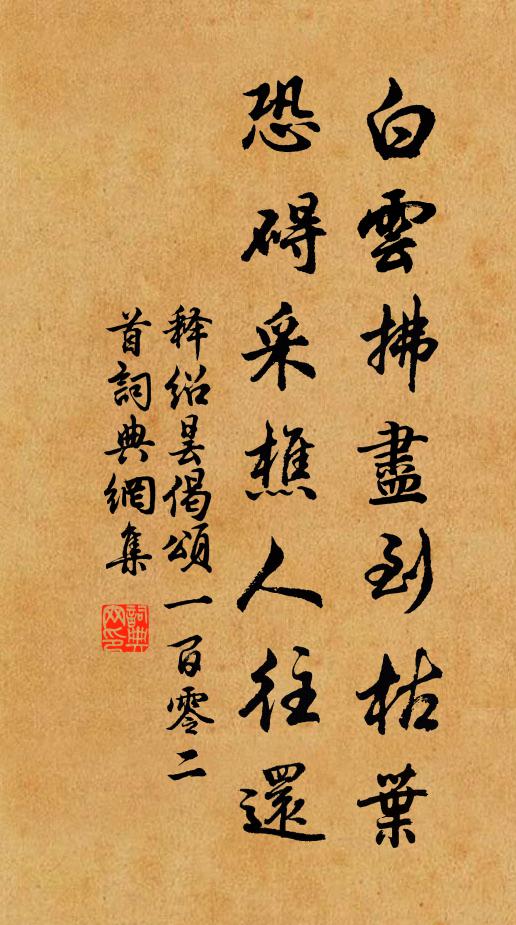 白雲拂盡到枯葉
恐碍采樵人往還
释绍昙偈頌一百零二
首詞典網集
詞典
网印